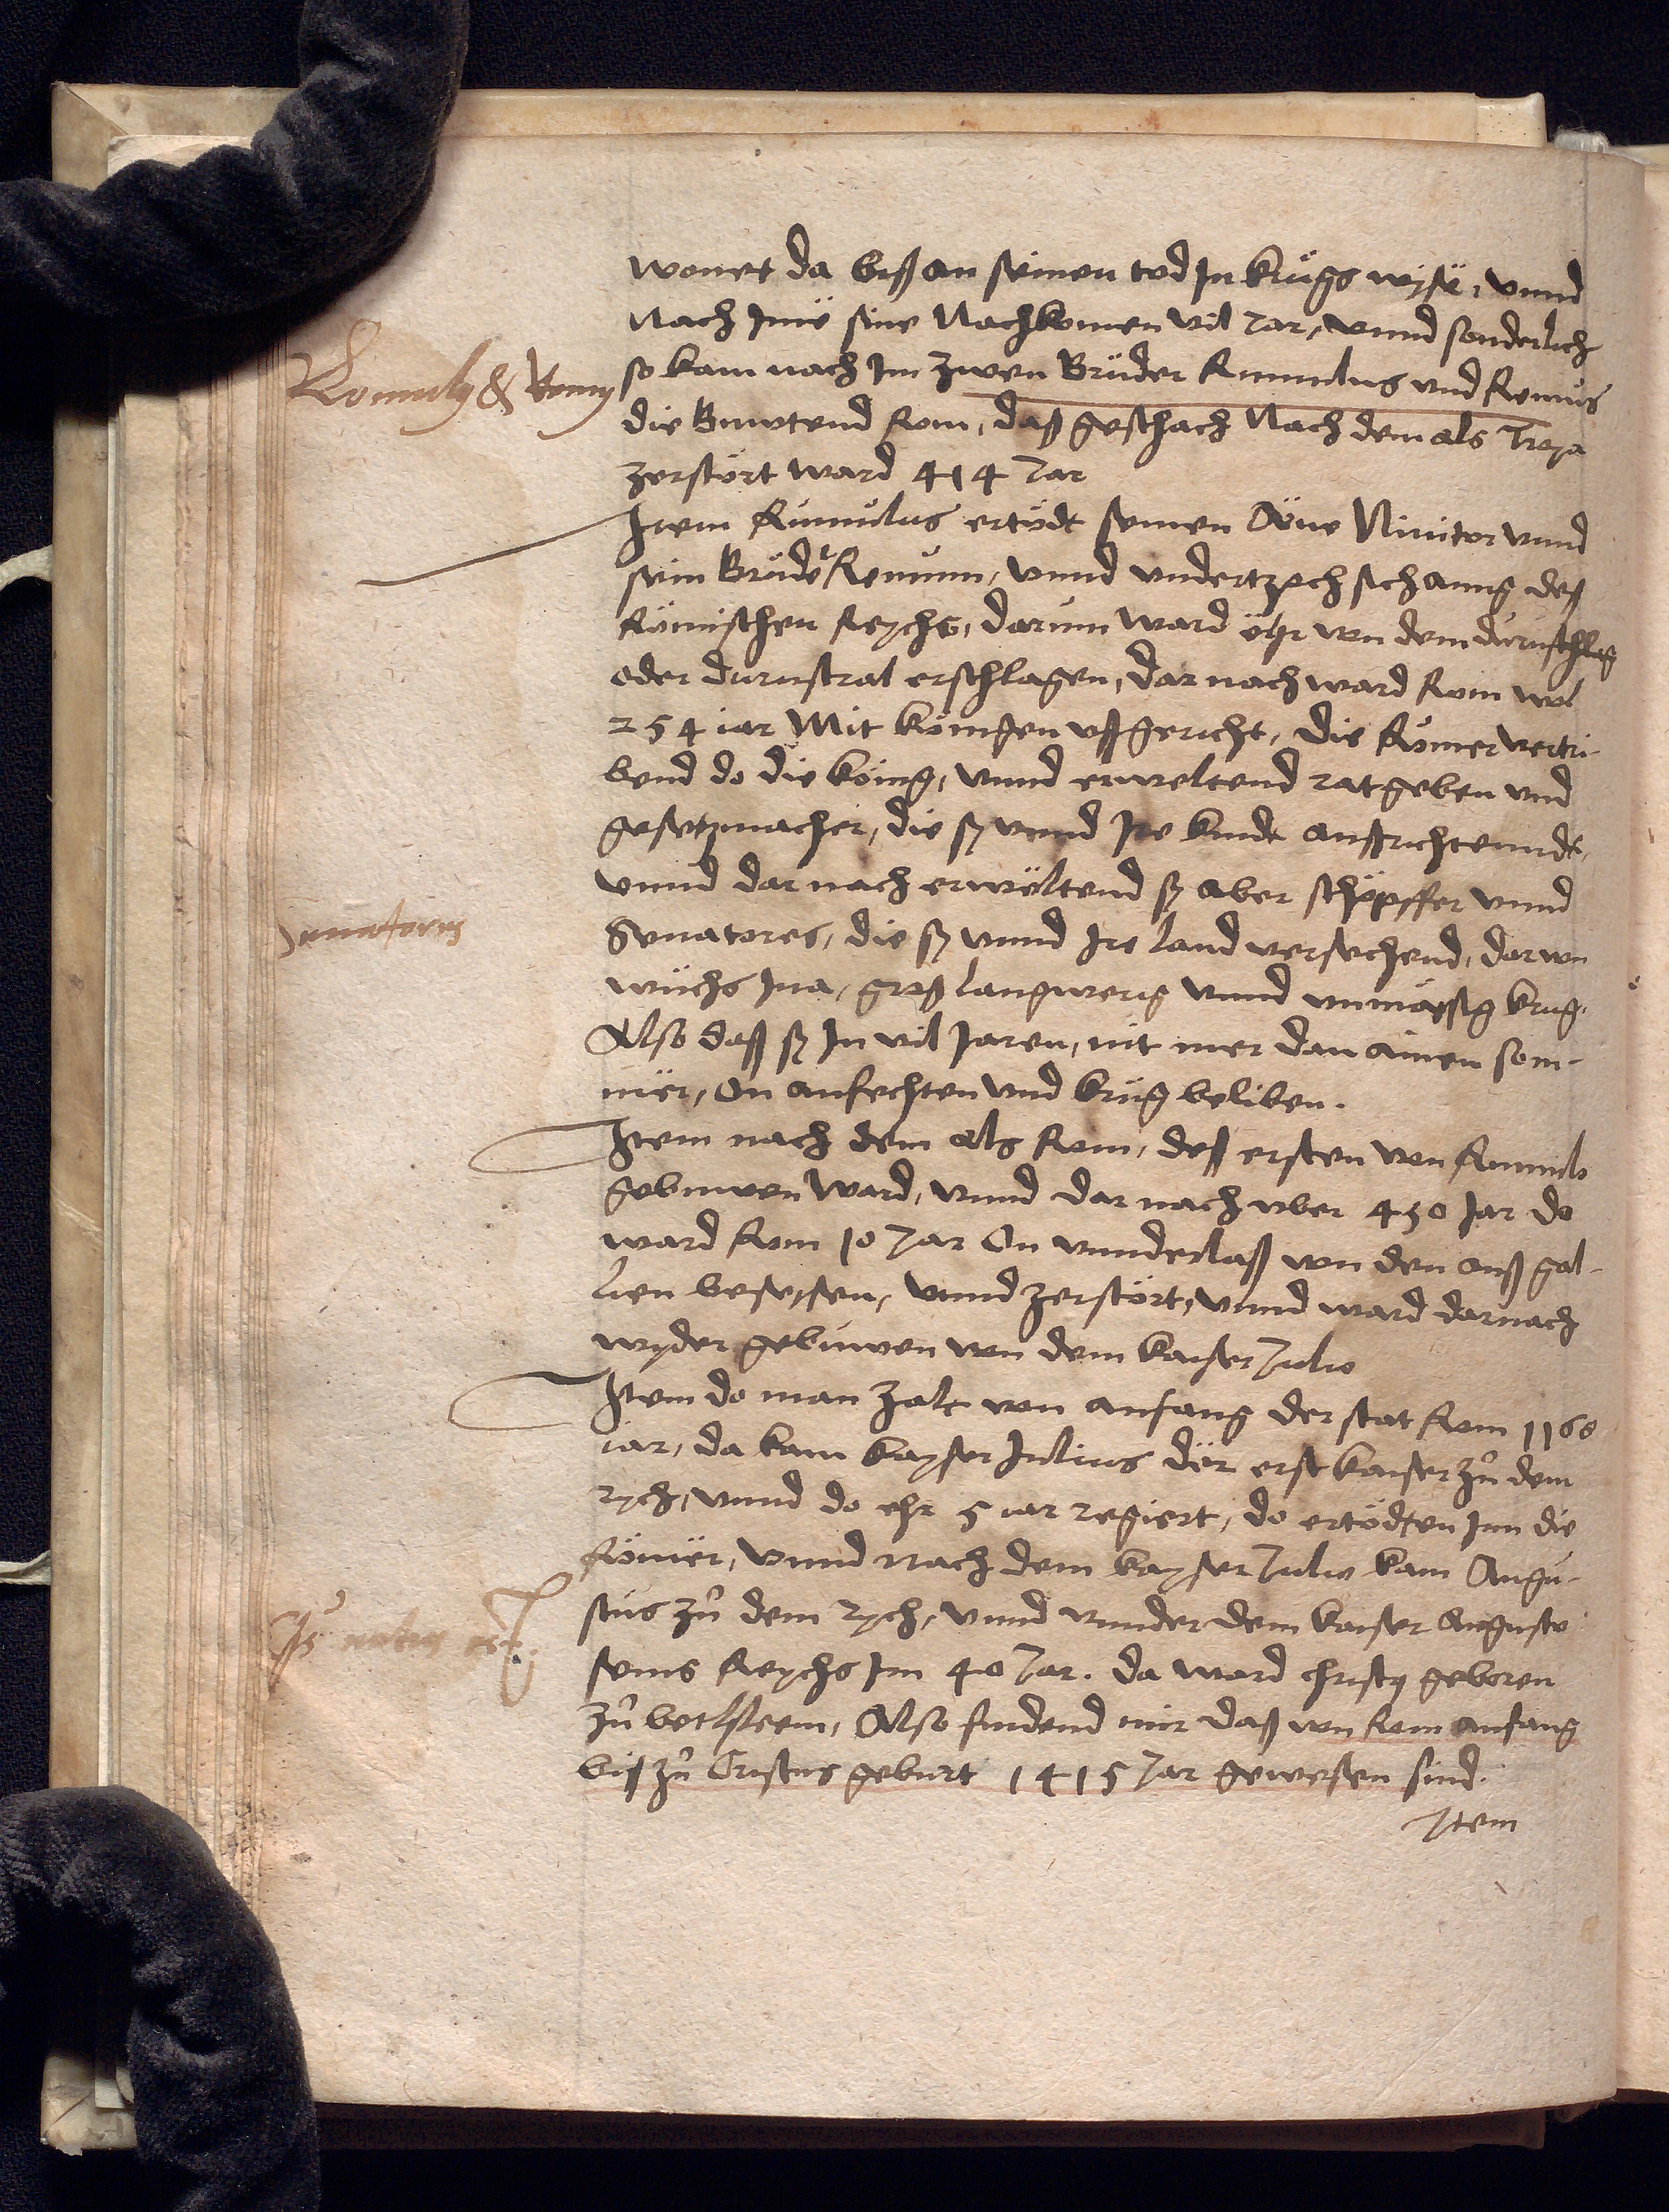 wonet da biß an seinen tod In kriegs wyse, vnnd
Nach Ime sine Nachkomen vil Jar, vnnd sonderlich
Romulus & Remus
so kam nach Im zwen Brüder Rumulus vnd Remus
die Buwtend Rom, daß geschach Nach dem als Troya
zerstört ward 414 Jar
Item Rumulus ertödt seinen Äne Numitor vnnd
sein Bruder Remum, vnnd vndertzoch sich ainig deß
Römischen Reychs, darum ward ehr von dem durnschlag
oder durnstral erschlagen, dar nach ward Rom wol
254 iar Mit königen vßgericht, die Römer vertri-
bend do die König, vnnd erweltend ratgeben vnd
gesetzmacher, die sy vnnd Ire kindt aussrichtenndt,
vnnd dar nach erwöltend sy aber schöpffer vnnd
Senatores
Senatores, die sy vnnd Ire land versechend, dar von
wuchs Ina, groß langwerig vnnd vnmässig krieg.
Also daß sy In vil Jaren, nit mer dan ainen som-
mer, on anfechten vnd krieg beliben.
Item nach dem als Rom, deß ersten von Rumulo
gebuwen ward, vnnd dar nach vber 450 Jar do
ward Rom 10 Jar On vnnderlaß von den auß gal-
lien besessen, vnnd zerstört, vnnd ward darnach
wyder gebuwen von dem kaiser Julio
Item do man zalt von anfang der stat Rom 1160
iar, da kam kayser Julius der erst kaiser zů dem
rych, vnnd do ehr 5 iar regiert, do ertödten Inn die
Römer, vnnd nach dem kayser Julio kam Augu-
stus zů dem rych, vnnd vnnder dem kaiser Augusto
natus est
seins Reychs Im 40 Jar. da ward christus geboren
zů bethleem, Also findend mir daß von Rom anfang
biß zů Cristus geburt 1415 Jar gewesen sind.
Item